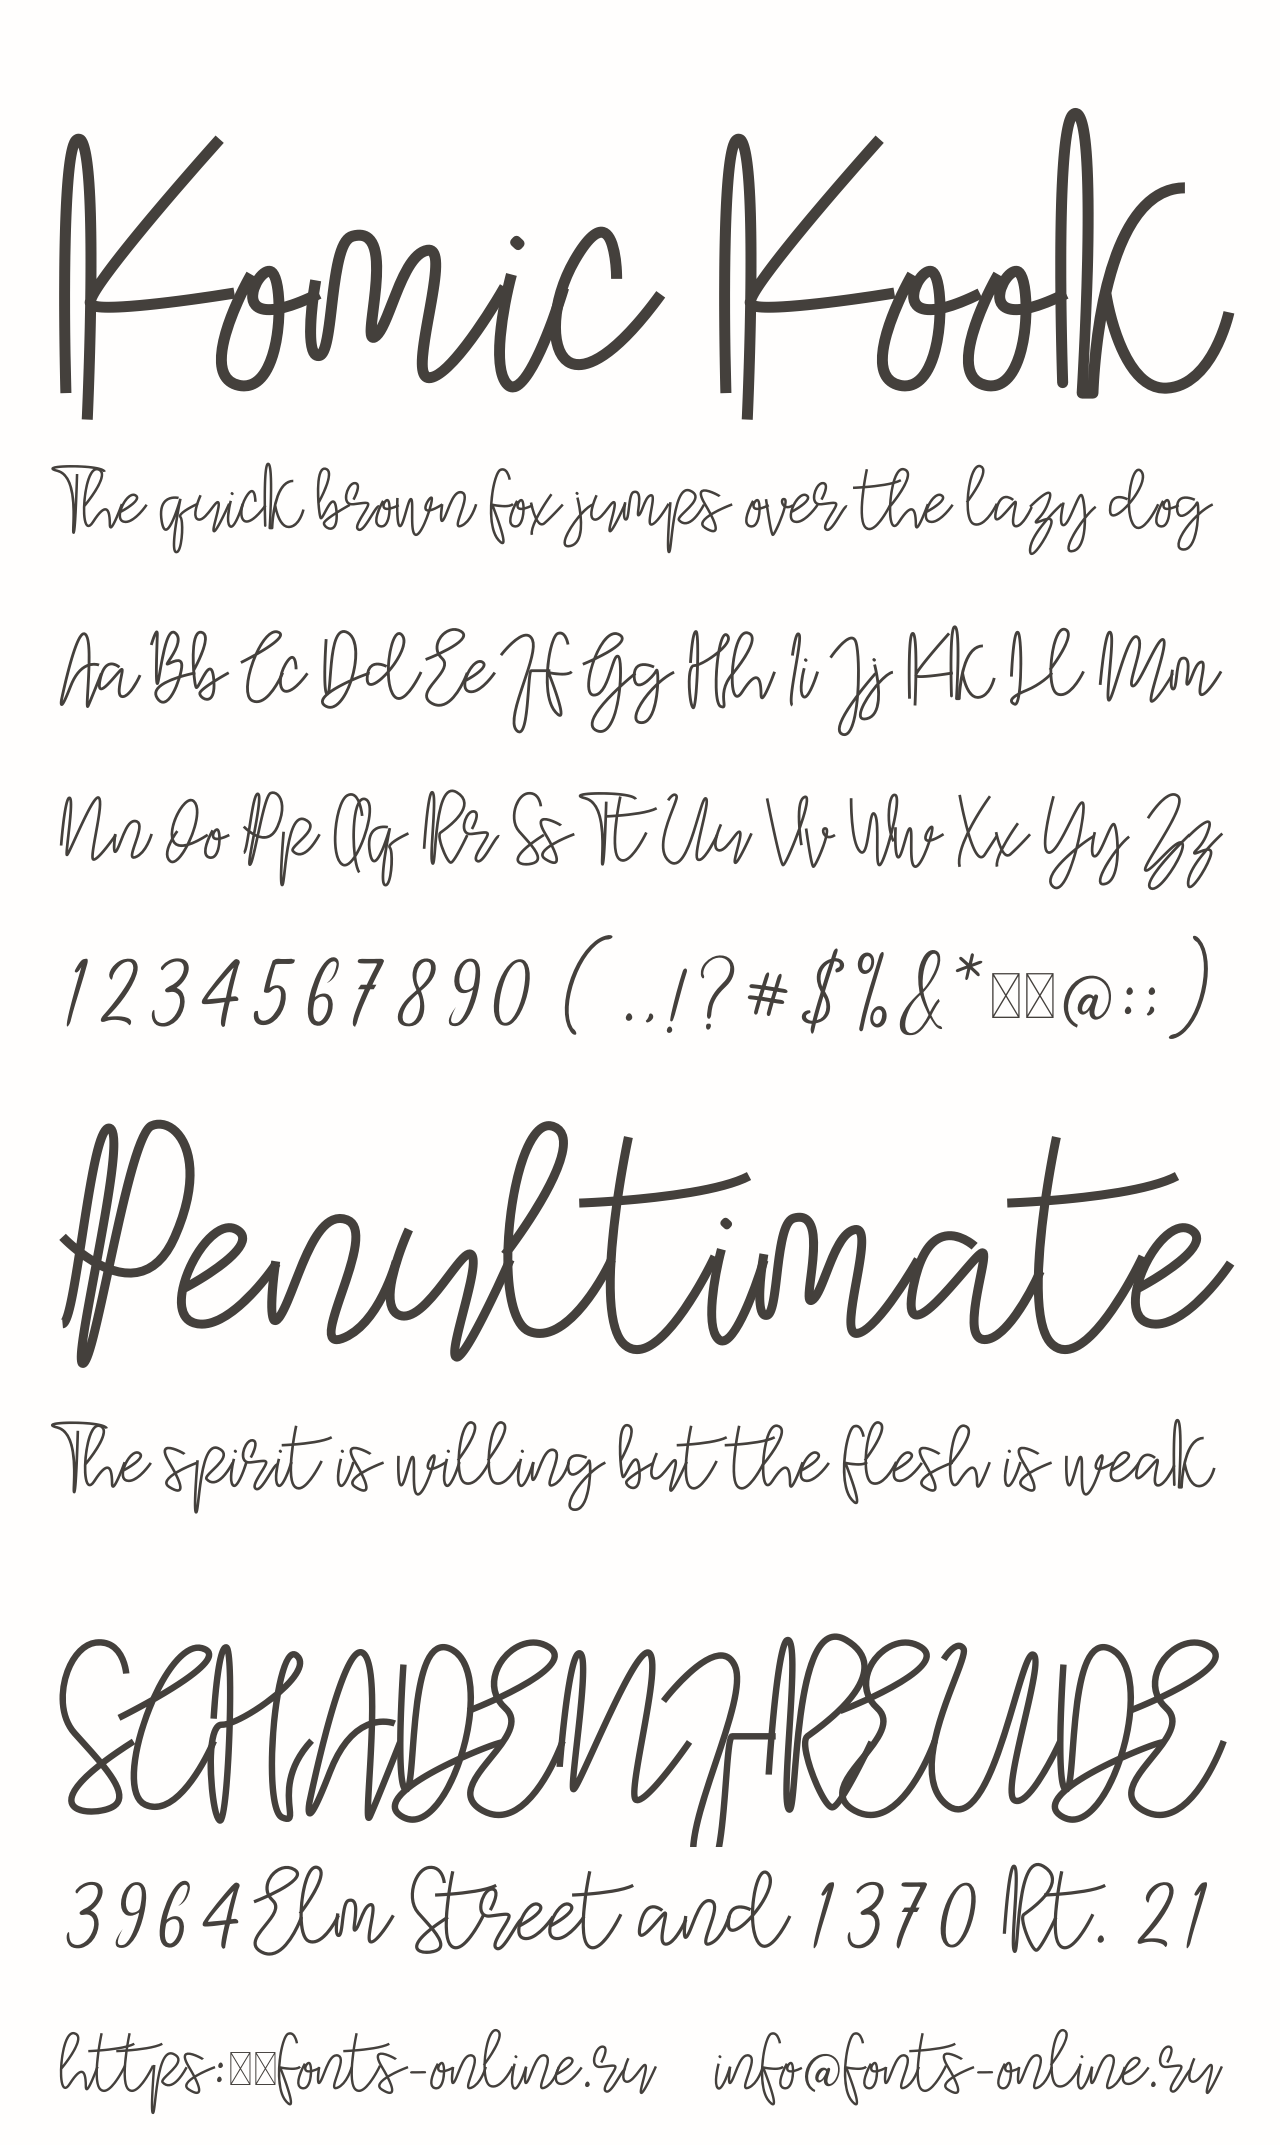 Komic Kook
The quick brown fox jumps over the lazy dog
Aa Bb Cc Dd Ee Ff Gg Hh Ii Jj Kk Ll Mm
Nn Oo Pp Qq Rr Ss Tt Uu Vv Ww Xx Yy Zz
1234567890 (.,!?#$%&*□□@:;)
Penultimate
The spirit is willing but the flesh is weak
SCHADENFREUDE
3964 Elm Street and 1370 Rt. 21
https:□□fonts-online.ru info@fonts-online.ru